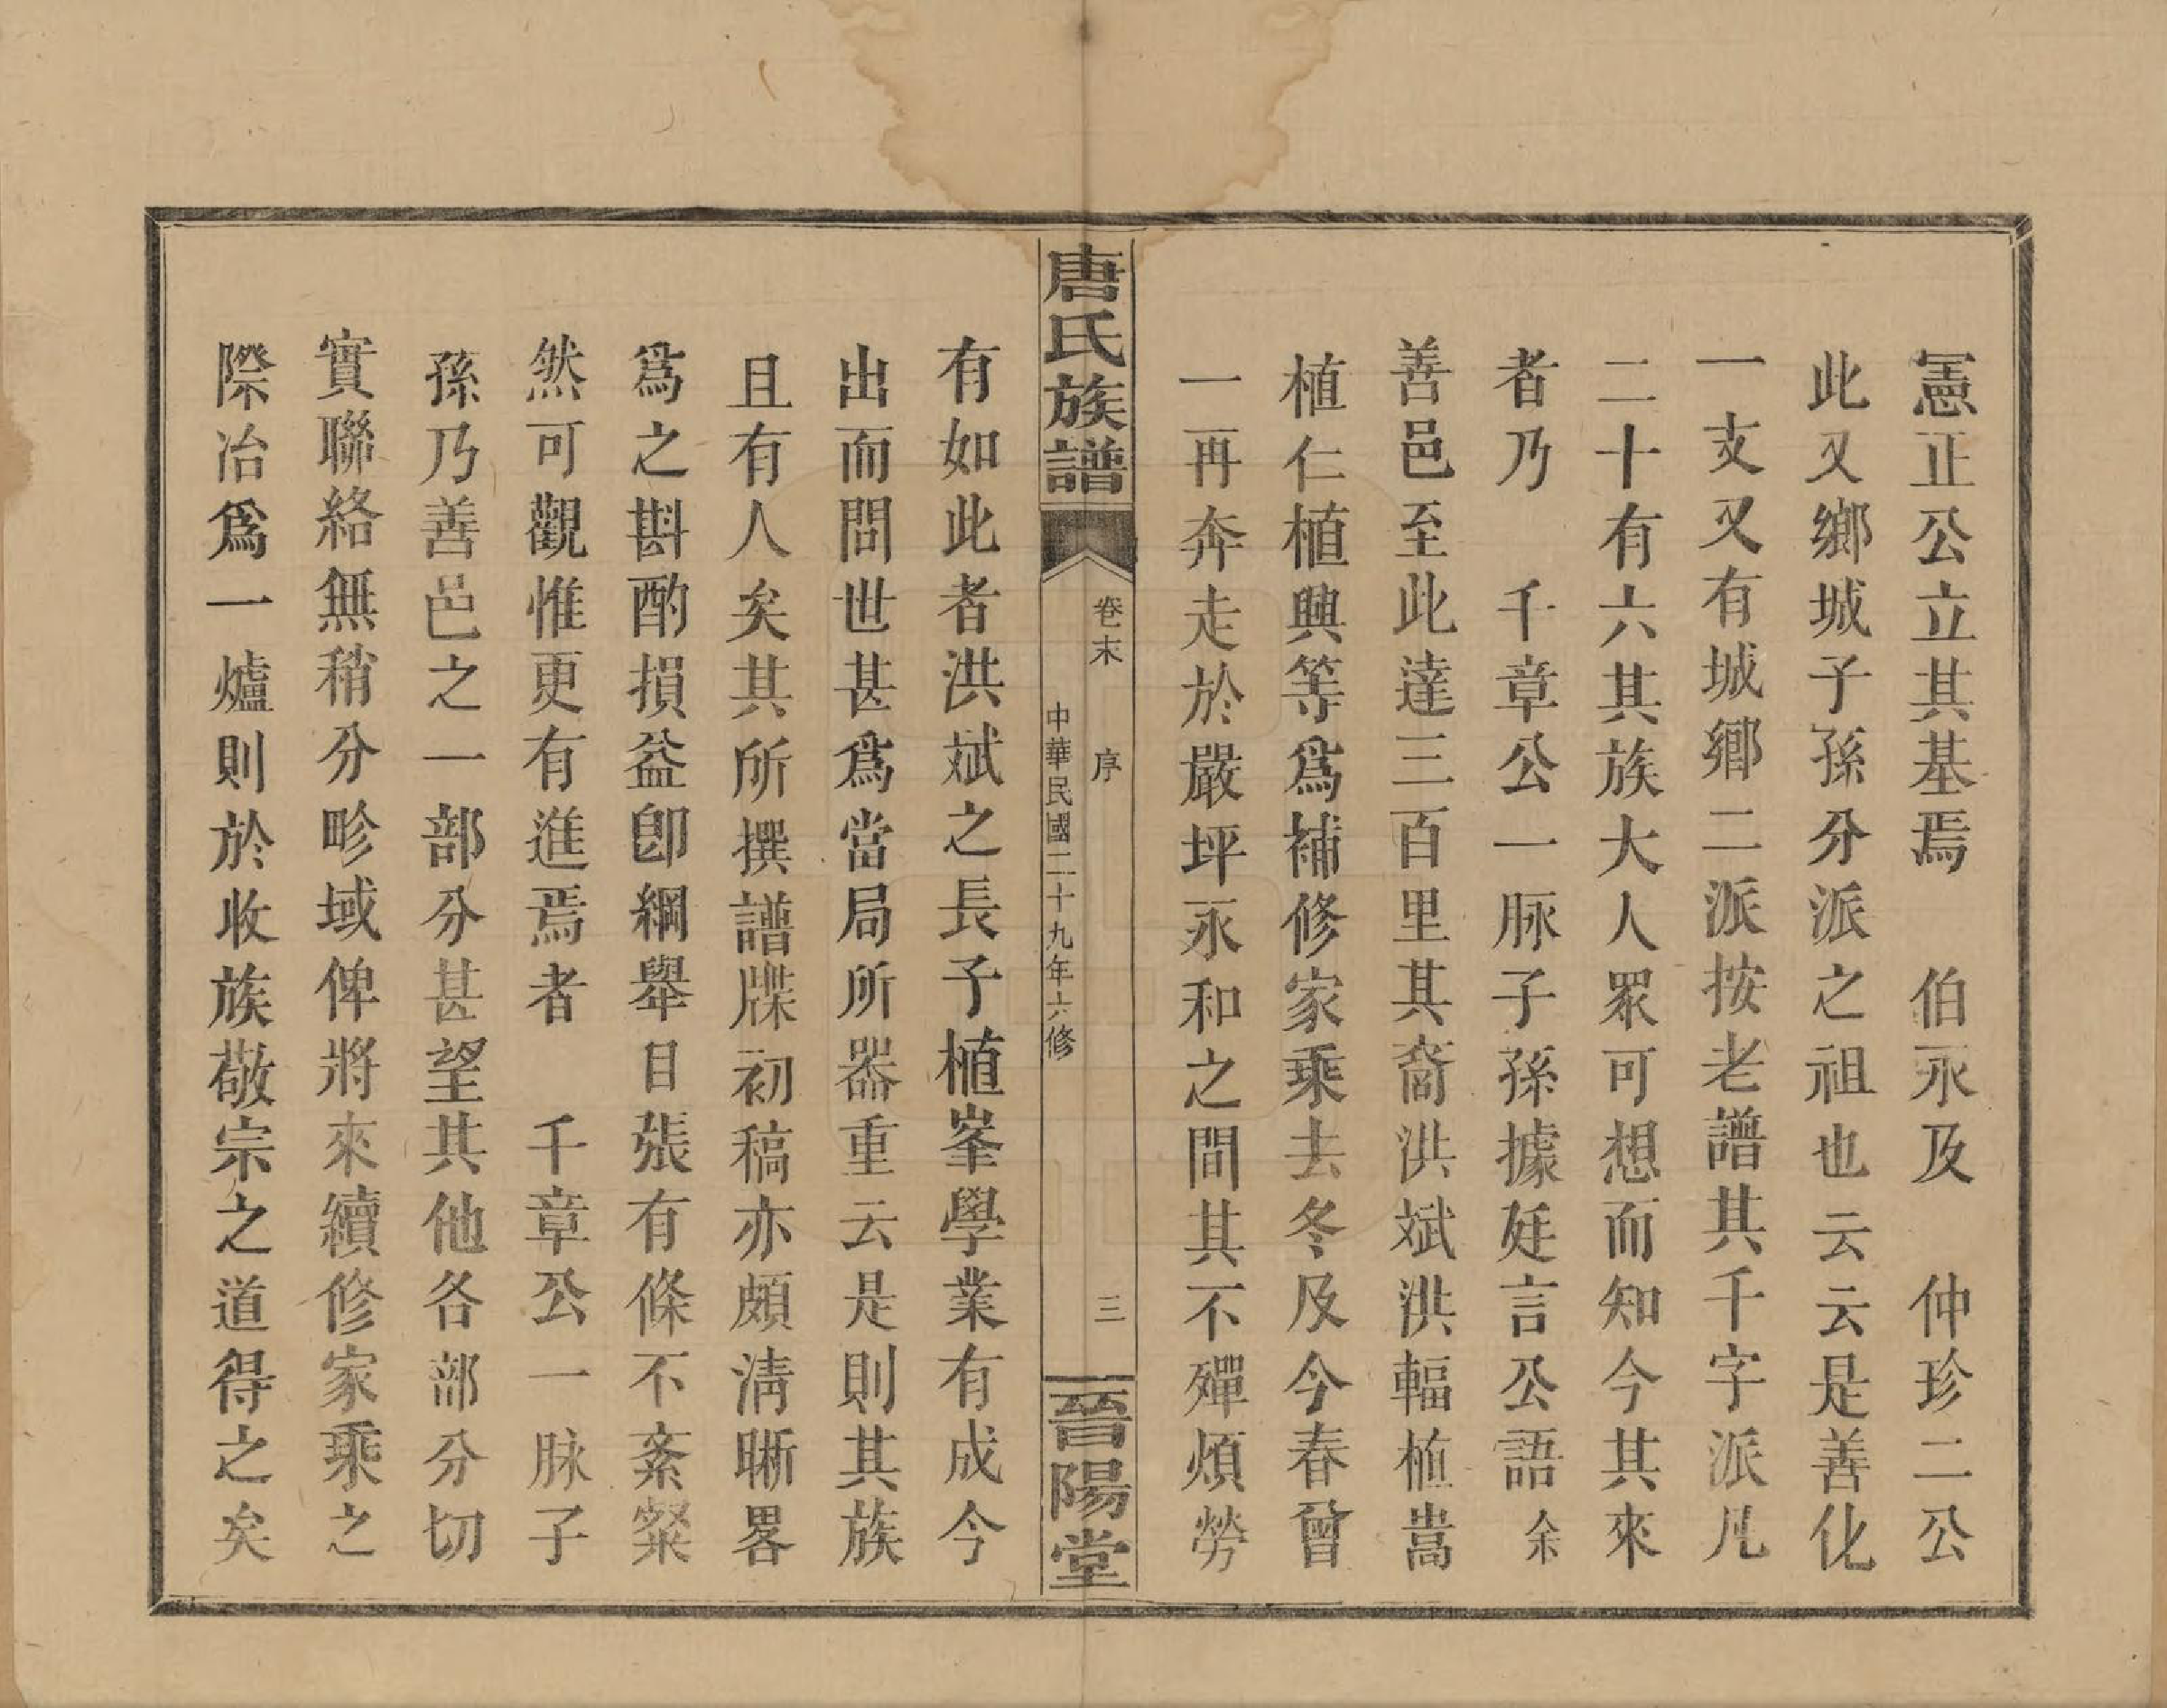 憲正公立其基焉　伯永及　仲珍二公
此又鄉城子孫分派之祖也云云是善化
一支又有城鄉二派按老譜其千字派凡
二十有六其族大人眾可想而知今其來
者乃　千章公一脉子孫據廷言公語余
善邑至此達三百里其裔洪斌洪輻植嵩
植仁植興等爲補修家乘去冬及今春曾
一再奔走於嚴坪永和之間其不殫煩勞
唐氏族譜
卷末　序
三
中華民國二十九年六修
晉陽堂
有如此者洪斌之長子植峯學業有成今
出而問世甚爲當局所器重云是則其族
且有人矣其所撰譜牒初稿亦頗淸晰畧
爲之斟酌損益卽綱舉目張有條不紊粲
然可觀惟更有進焉者　千章公一脉子
孫乃善邑之一部分甚望其他各部分切
實聯絡無稍分畛域俾將來續修家乘之
際冶爲一爐則於收族敬宗之道得之矣